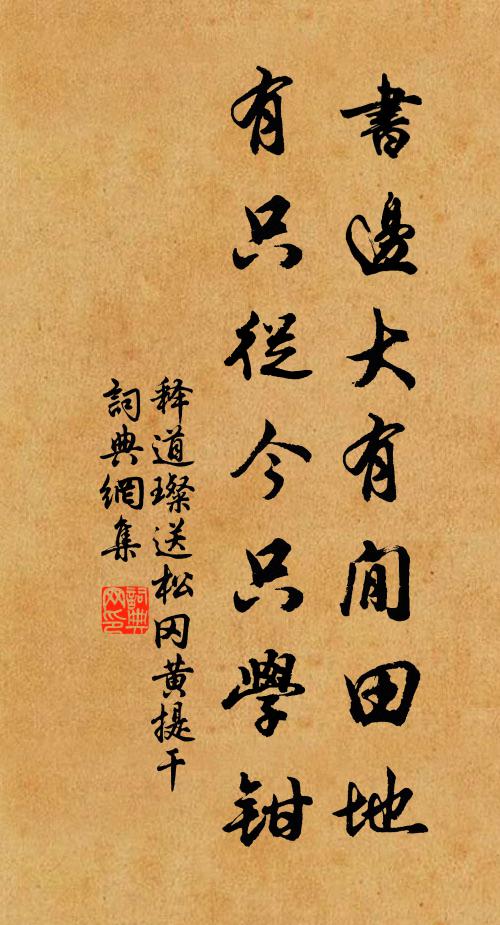 書邊大有閒田地
有只從今只學鉗
释道璨送松冈黄提干
詞典網集
詞典网印